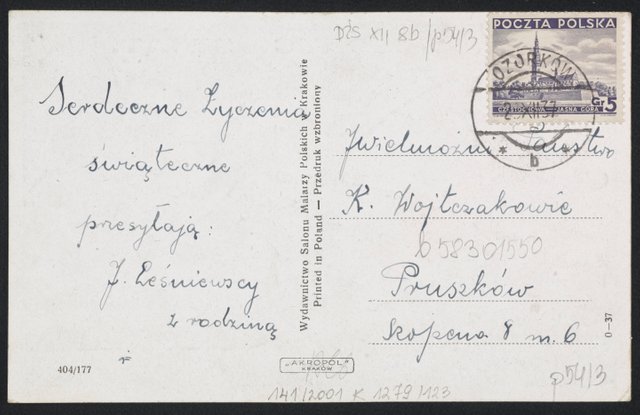 DŹS XII 8b/p54/3
POCZTA POLSKA
CZĘSTOCHOWA — JASNA GÓRA
Gr 5
OZORKÓW
XII 37
b
Serdeczne Życzenia
świąteczne
przesyłają:
J. Leśniewscy
z rodziną
404/177
Wydawnictwo Salonu Malarzy Polskich w Krakowie
Printed in Poland — Przedruk wzbroniony
"AKROPOL"
KRAKÓW
141/2001 K 1279/123
Jwielmożni Państwo
K. Wojtczakowie
b 58301550
Pruszków
Skopena 8 m. 6
0-37
p54/3